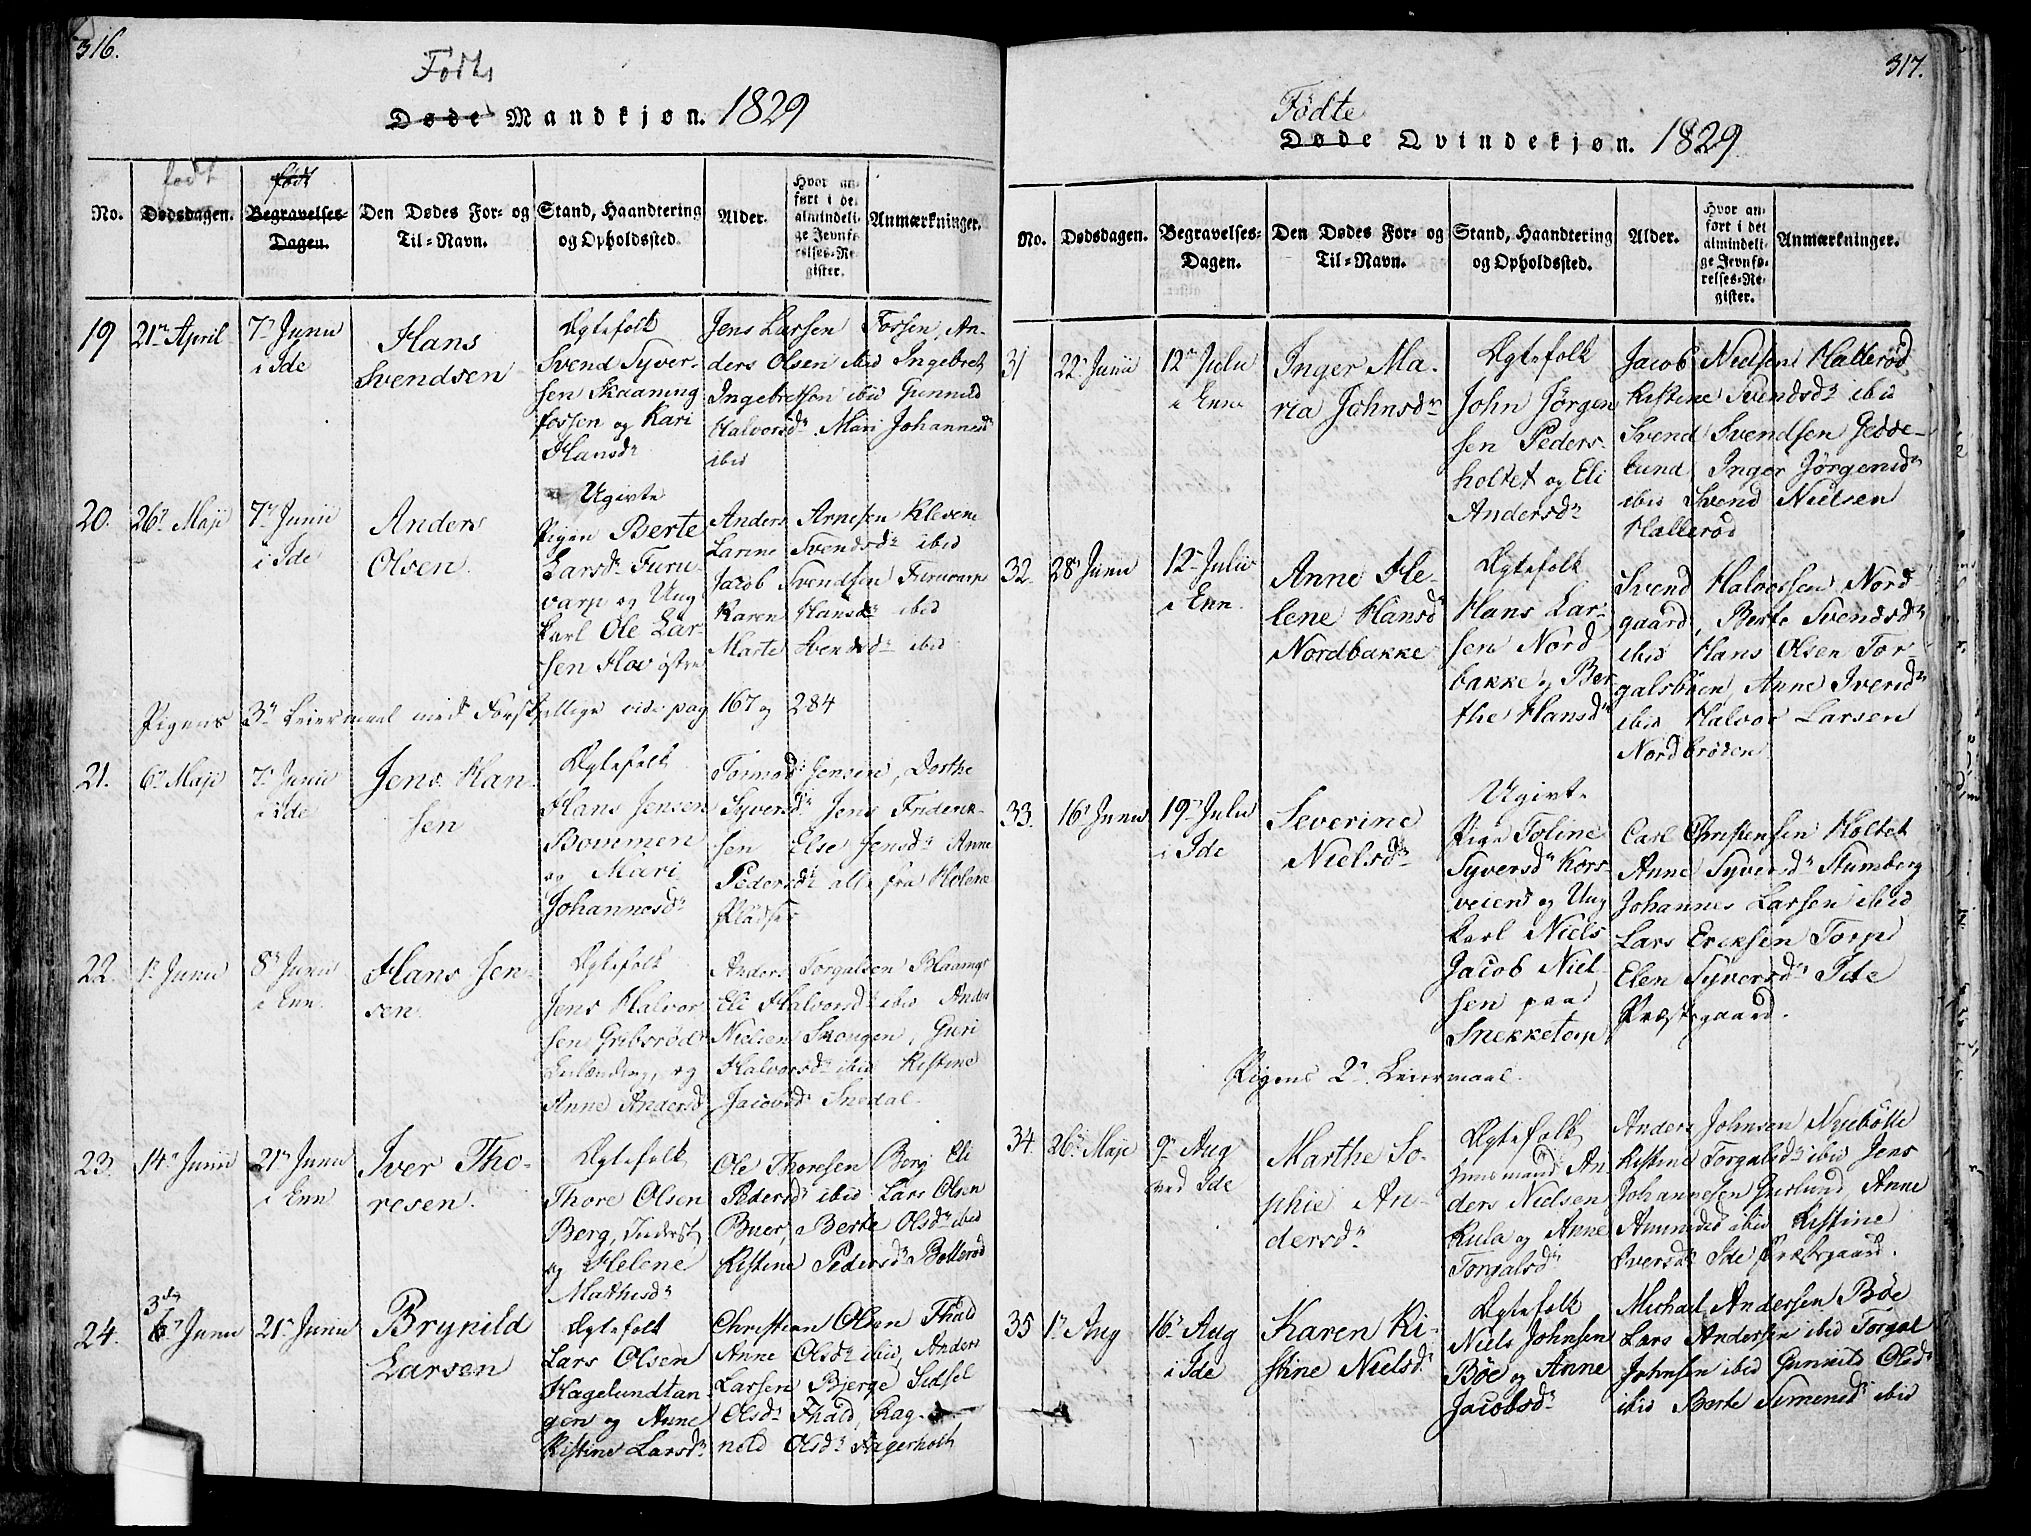 316.
Födte
Døde Mandkjøn. 1829
født
født
No.
Dødsdagen.
Begravelses-
Dagen.
Den Dødes For- og
Til-Navn.
Stand, Haandtering
og Opholdssted.
Alder.
Hvor an-
ført i det
almindeli-
ge Jevnfø-
relses-Re-
gister.
Anmærkninger.
19
21n April
7n Junii
i Ide
Hans
Svendsen
Ægtefolk
Svend Syver-
sen Skaaning
fossen og Kari
Hansdr
Jens Larsen Fossen, An-
ders Olsen ibid Ingebret
Ingebretsen ibid Gunnild
Halvorsdr Mari Johannesdr
ibid
20.
26n Maji
7n Junii
i Ide
Anders
Olsen
Ugivte
Pigen Berte
Larsdr Furu-
varp og Ung
karl Ole Lar-
sen Hov østre
Anders Arnesen Klevene
Larine Svendsdr ibid
Jacob Svendsen Furuvarp
Karen Hansdr ibid
Marte Svendsdr ibid
Pigens 3n Leiermaal med Forskjellige vide pag 167 og 284
21.
6n Maji
7n Junii
i Ide
Jens Han-
sen
Ægtefolk
Hans Jensen
Bommen
og Mari
Johannesdr
Tormod Jensen, Dorthe
Syversdr Jens Friderik-
sen Else Jensdr Anne
Pedersdr alle fra Holene
Pladser
22.
1n Junii
8n Junii
i Enn.
Hans Jen-
sen
Ægtefolk
Jens Halvor
sen Gribsrød
og
Anne Andersd
Anders Torgalsen
Eli Halvorsdr ibid Anders
Nielsen Skougen, Guri
Halvorsdr ibid Kistine
Jacobsd Snedal
23.
14n Junii
21n Junii
i Enn
Iver Tho-
resen.
Ægtefolk
Thore Olsen
Berg, Inderst,
og Helene
Mathisdr
Ole Thoresen Berg Eli
Pedersdr ibid Lars Olsen
Buer, Berte Olsdr ibid
Kistine Pedersdr Bøllerød
24.
3die
6n Junii
21n Junii
Brynild
Larsen
Ægtefolk
Lars Olsen
Hagelundtan
gen og Anne
Kistine Larsdr
Christian Olsen Thald
Anne Olsdr ibid, Anders
Larsen Bjerge Sidsel
Olsdr Thald, Rag-
nild Olsdr Aagerholt
317.
Födte
Døde Qvindekjøn. 1829
No.
Dødsdagen.
Begravelses-
Dagen.
Den Dødes For- og
Til-Navn.
Stand, Haandtering
og Opholdssted.
Alder.
Hvor an-
ført i det
almindeli-
ge Jevnfø-
relses-Re-
gister.
Anmærkninger.
31
22n Junii
12n Julii
i Enn.
Inger Ma-
ria Johnsdr
Ægtefolk
John Jörgen
sen Peders-
holtet og Eli
Andersdr
Jacob Nielsen Hallerød
Kistine Svendsdr ibid
Svend Svendsen Gedde-
lund Inger Jörgensdr
ibid Svend Nielsen
Hallerød
32.
28n Junii
12n Julii
i Enn.
Anne He-
lene Hansd
Nordbakke
Ægtefolk
Hans Lar-
sen Nord
bakke og Ber-
the Hansdr
Svend Halvorsen Nord
gaard, Berte Svendsdr
ibid Hans Olsen Tor-
galsböen, Anne Iversdr
ibid Halvor Larsen
Nordbröden
33.
16n Junii
19n Julii
i Ide
Severine
Nielsdr
Ugivte
Pige Toline
Syversdr Kors-
veien og Ung
karl Niels
Jacob Niel-
sen paa
Snekketorp
Carl Christensen Holtet
Anne Syversdr Stumberg
Johannes Larsen ibid
Lars Ericksen Torp
Elen Syversdr Ide
Præstegaard.
Pigens 2n Leiermaal.
34.
26n Maji
9n Aug
ved Ide
Marthe So-
phie An-
dersdr
Ægtefolk
Huusmand An
ders Nielsen
Kula og Anne
Torgalsdr
Anders Johnsen Nyebölle
Kistine Torgalsdr ibid Jens
Johannesen Guslund, Anne
Amundsd ibid Kistine
Iversdr Ide Præstegaard.
35
1n Aug
16n Aug
i Ide
Karen Ki-
stine Nielsdr
Ægtefolk
Niels Johnsen
Böe og Anne
Jacobsdr
Michael Andersen Böe
Lars Andersen ibid Torgal
Johnsen ibid Gunnild Olsdr
ibid Berte Simensdr ibid